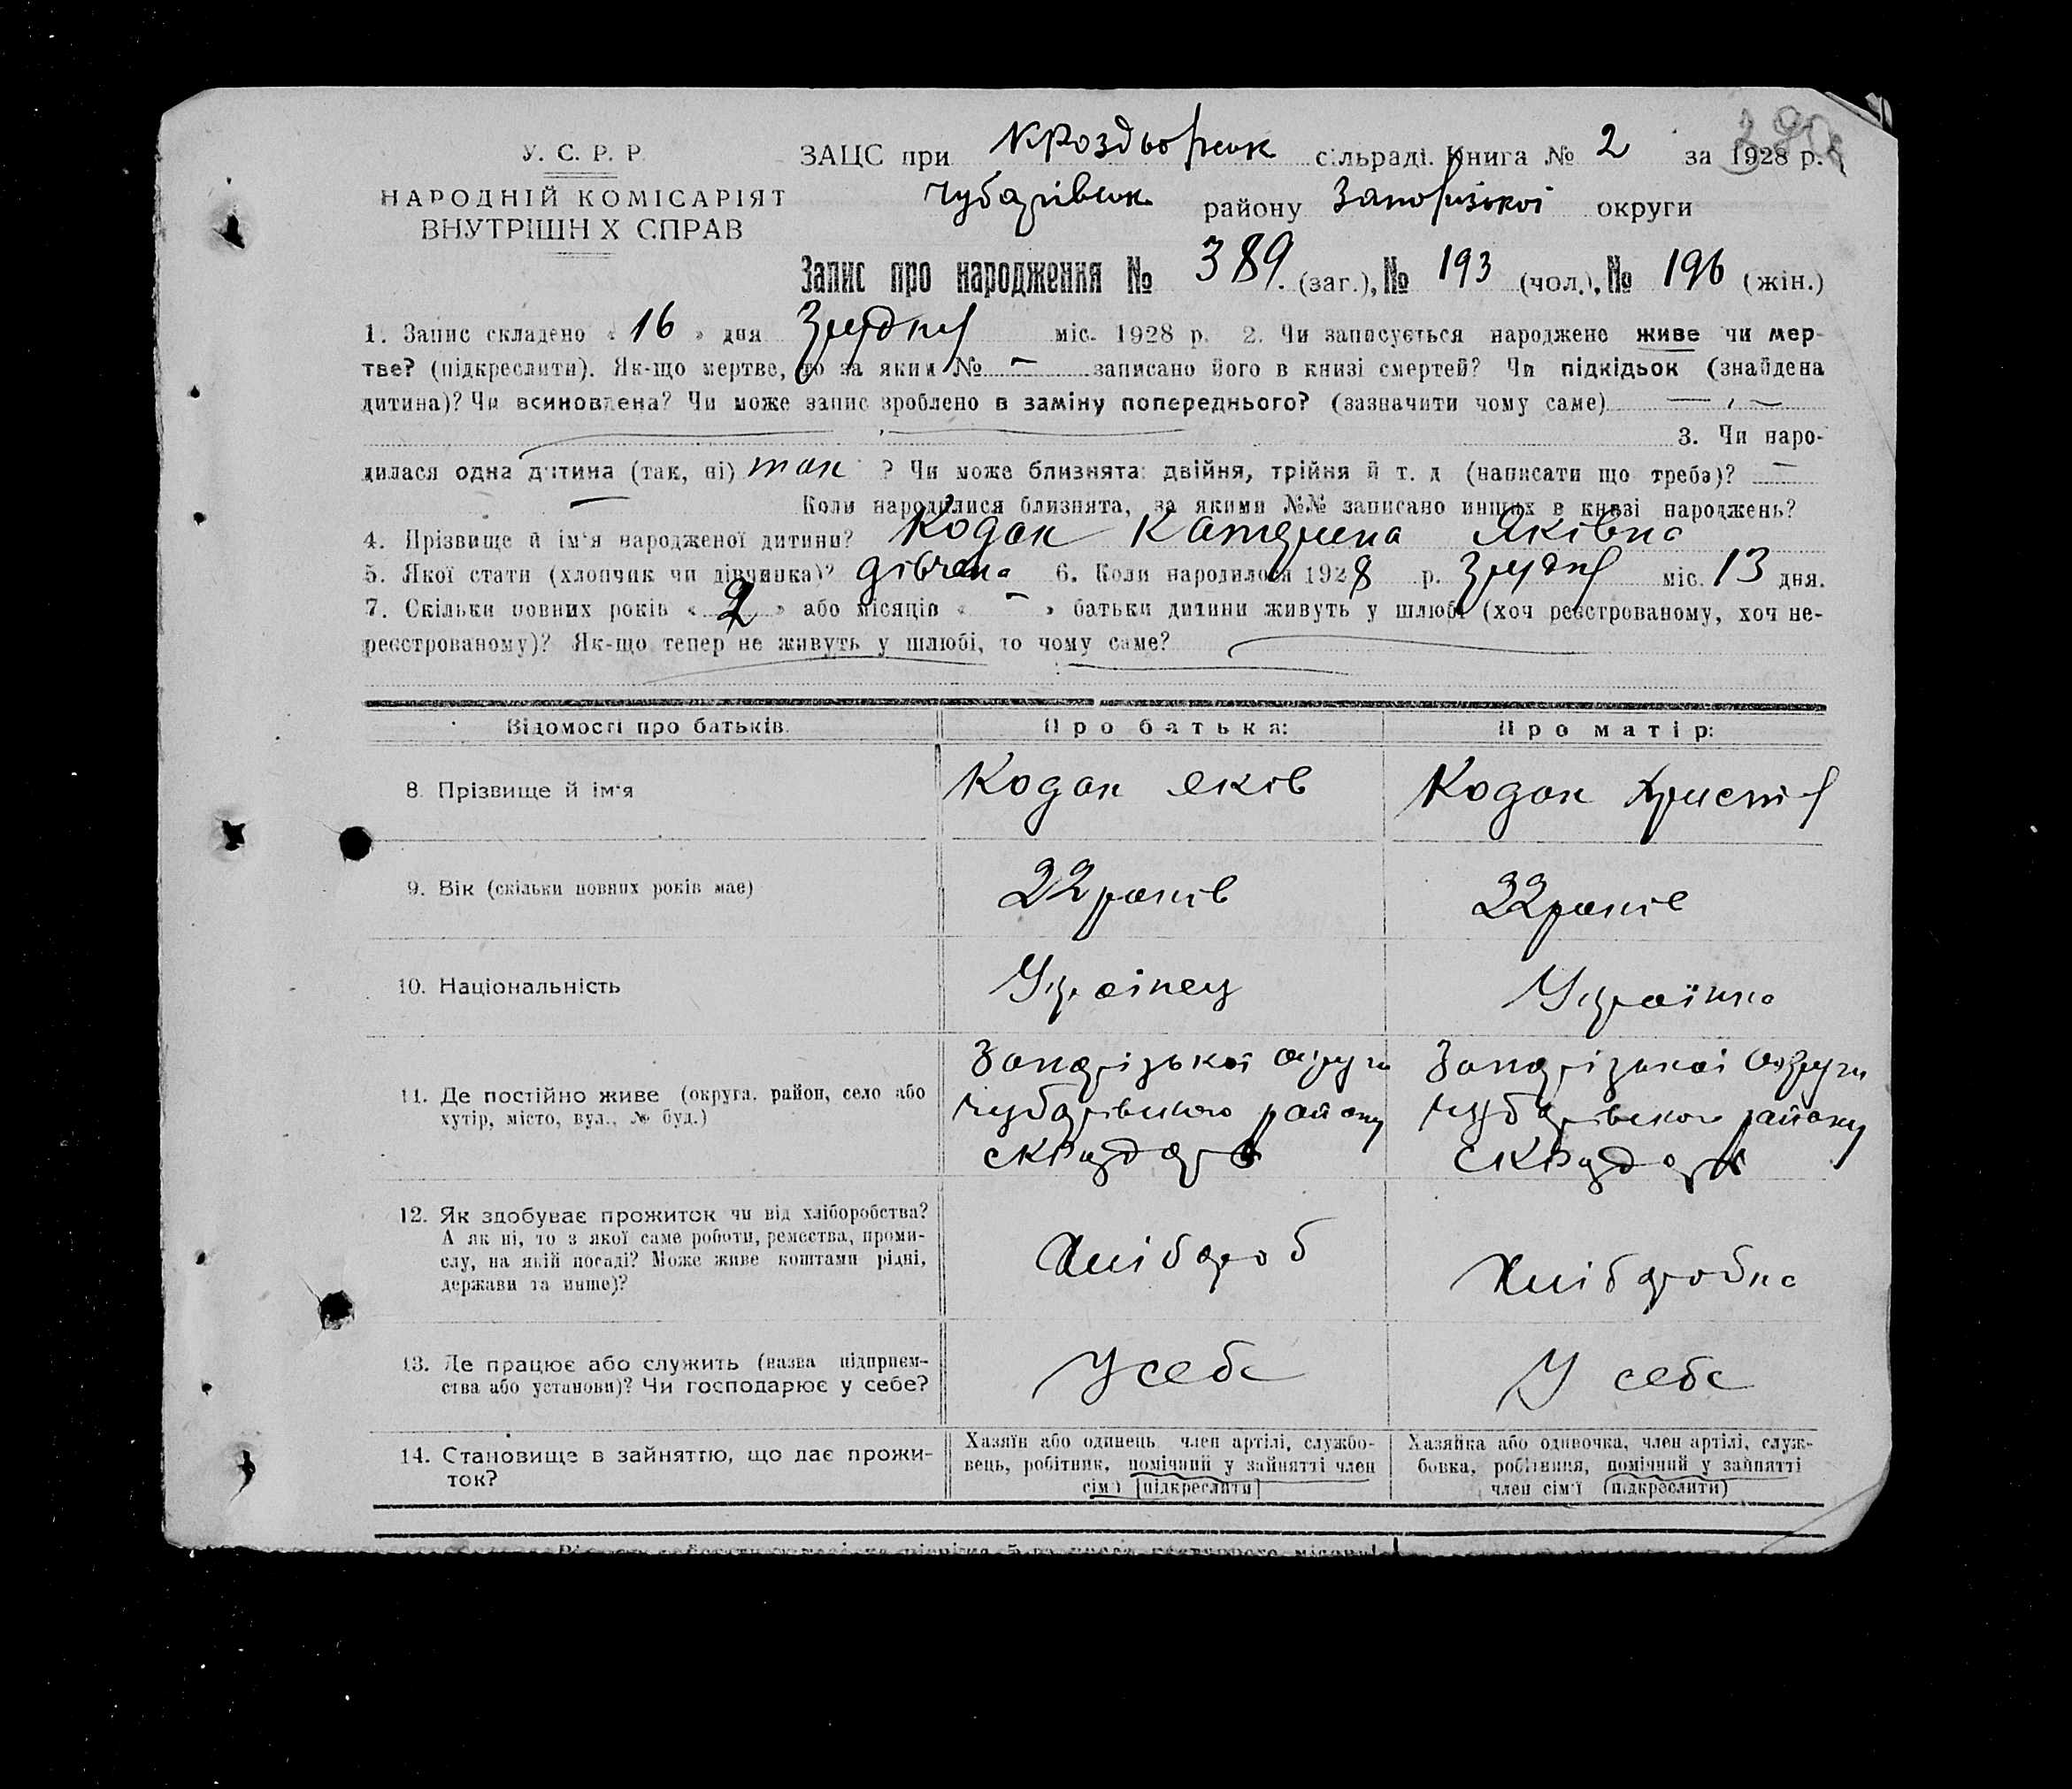 У. С. Р. Р.
НАРОДНІЙ КОМІСАРІЯТ
ВНУТРІШН Х СПРАВ
ЗАЦС при сільраді. Книга № 2 за 1928 р.
Чубарівськ району Запорізької округи
Запис про народження № 389. (заг.), № 193 (чол.), № 196 (жін.)
1. Запис складено « 16 » дня Грудня міс. 1928 р. 2. Чи записується народжене живе чи мер-
тве? (підкреслити). Як-що мертве, то за яким № — записано його в книзі смертей? Чи підкідьок (знайдена
дитина)? Чи всиновлена? Чи може запис зроблено в заміну попереднього? (зазначити чому саме) —
3. Чи наро-
дилася одна дитина (так, ні) так ? Чи може близнята: двійня, трійня й т. д (написати що треба)? —
— Коли народилися близнята, за якими №№ записано инших в книзі народжень?
4. Прізвище й ім'я народженої дитини? Кодак Катерина Яківна
5. Якої стати (хлопчик чи дівчинка)? дівчена 6. Коли народилося 1928 р. Грудня міс. 13 дня.
7. Скільки повних років « 2 » або місяців « — » батьки дитини живуть у шлюбі (хоч реєстрованому, хоч не-
реєстрованому)? Як-що тепер не живуть у шлюбі, то чому саме?
Відомості про батьків. Про батька: Про матір:
8. Прізвище й ім'я Кодак Яків Кодак Христя
9. Вік (скільки повних років має) 22 років 22 років
10. Національність Українец Українка
11. Де постійно живе (округа, район, село або
хутір, місто, вул., № буд.)
Запорізької округи Запорізької округи
Чубарівського району Чубарівського району
12. Як здобуває прожиток чи від хліборобства?
А як ні, то з якої саме роботи, ремества, проми-
слу, на якій посаді? Може живе коштами рідні,
держави та инше)?
Хлібороб Хлібаробка
13. Де працює або служить (назва підприєм-
ства або установи)? Чи господарює у себе?
У себе У себе
14. Становище в зайняттю, що дає прожи-
ток?
Хазяїн або одинець, член артілі, службо-
вець, робітник, помічний у зайнятті член
сім'ї (підкреслити)
Хазяйка або одиночка, член артілі, служ-
бовка, робітниця, помічний у зайнятті
член сім'ї (підкреслити)